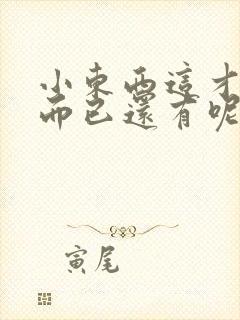 小東西這才
而已還有呢
寅尾